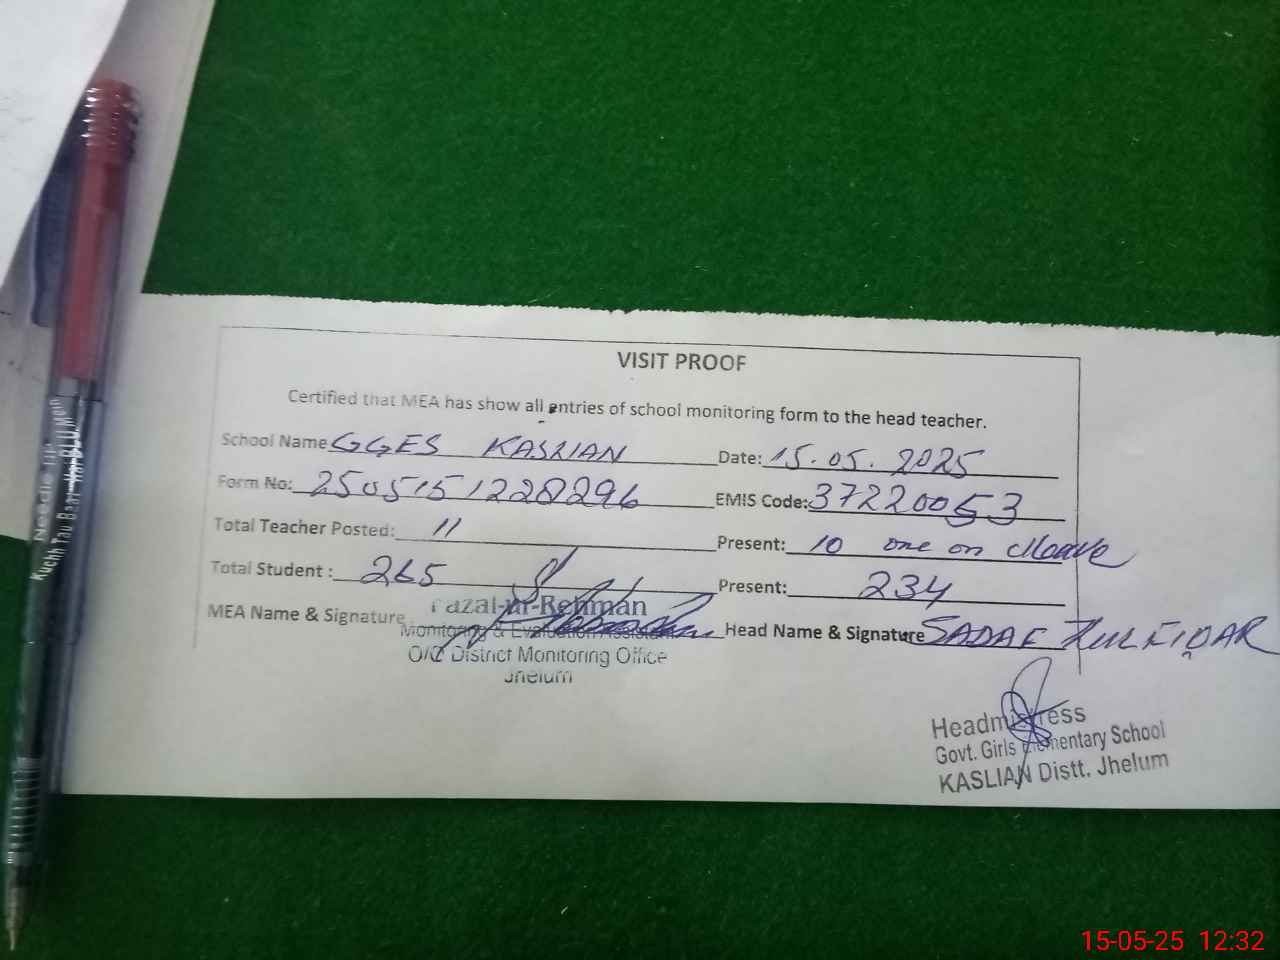 VISIT PROOF
Certified that MEA has show all entries of school monitoring form to the head teacher.
School Name GGES KASLIAN Date: 15.05.2025
Form No: 2505151228296 EMIS Code: 37220053
Total Teacher Posted: 11 Present: 10 one on cleave
Total Student : 265 Present: 234
MEA Name & Signature Head Name & Signature SADAF ZULFIQAR
Fazal-ur-Rehman
Monitoring & Evaluation Assistant
O/O District Monitoring Office
Jhelum
Headmistress
Govt. Girls Elementary School
KASLIAN Distt. Jhelum
Needle TIP
Kuchh Tau Baat Hai
15-05-25 12:32